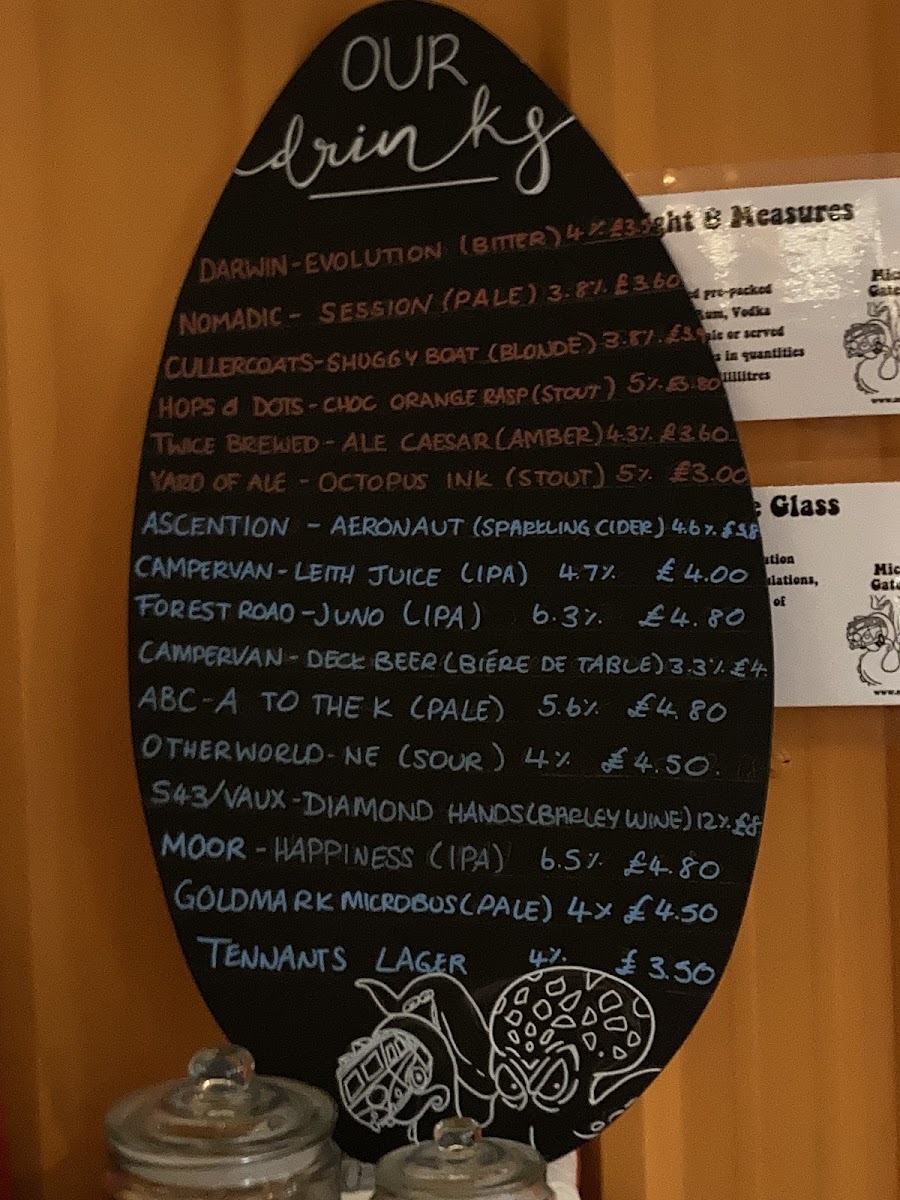 OUR
drinks
DARWIN-EVOLUTION (BITTER) 4%
NOMADIC - SESSION (PALE) 3.8% £3.60
CULLERCOATS-SHUGGY BOAT (BLONDE) 3.8%
HOPS & DOTS - CHOC ORANGE RASP (STOUT) 5% £3.80
TWICE BREWED - ALE CAESAR (AMBER) 4.3% £3.60
YARD OF ALE - OCTOPUS INK (STOUT) 5% £3.00
ASCENTION - AERONAUT (SPARKLING CIDER) 4.6% £3.8
CAMPERVAN-LEITH JUICE (IPA) 4.7% £4.00
FOREST ROAD-JUNO (IPA) 6.3% £4.80
CAMPERVAN-DECK BEER (BIÉRE DE TABLE) 3.3% £4.
ABC-A TO THE K (PALE) 5.6% £4.80
OTHERWORLD-NE (SOUR) 4% £4.50.
S43/VAUX-DIAMOND HANDS (BARLEY WINE) 12% £8
MOOR - HAPPINESS (IPA) 6.5% £4.80
GOLDMARK MICROBUS (PALE) 4% £4.50
TENNANTS LAGER 4% £3.50
ght & Measures
pre-packed
Rum, Vodka
or served
in quantities
Mic
Gate
www.
Glass
of
Mic
Gate
www.